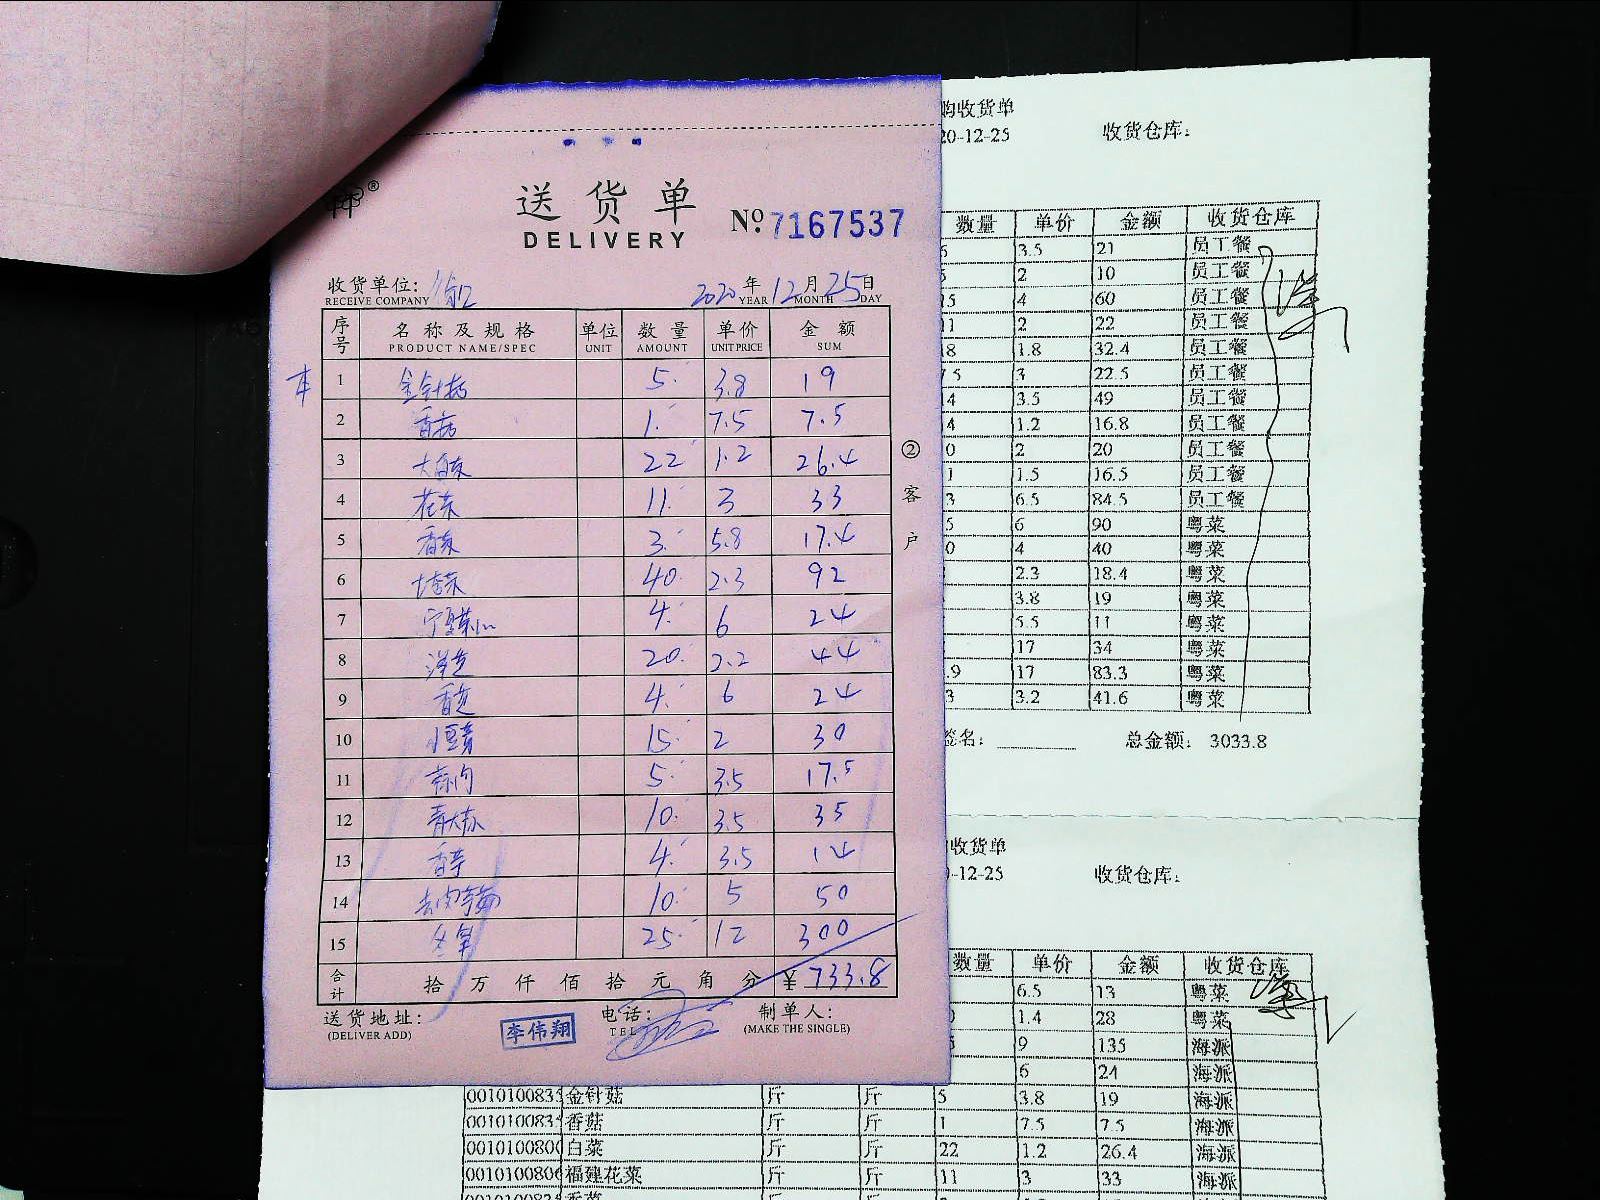 送货单
DELIVERY
№ 7167537
收货单位:
RECEIVE COMPANY
2020年12月25日
YEAR MONTH DAY
序号 名称及规格 单位 数量 单价 金额
PRODUCT NAME/SPEC UNIT AMOUNT UNIT PRICE SUM
1 金针菇 5 3.8 19
2 香菇 1 7.5 7.5
3 大白菜 22 1.2 26.4
4 花菜 11 3 33
5 香菜 3 5.8 17.4
6 40 2.3 92
7 宁夏菜心 4 6 24
8 洋芝 20 2.2 44
9 香芝 4 6 24
10 小豆青 15 2 30
11 蒜肉 5 3.5 17.5
12 青大蒜 10 3.5 35
13 香芋 4 3.5 14
14 10 5 50
15 冬笋 25 12 300
合计 拾万仟佰拾元角分 ¥733.8
送货地址:
(DELIVER ADD)
李伟翔
电话:
TEL
制单人:
(MAKE THE SINGLE)
②客户
购收货单
20-12-25 收货仓库:
数量 单价 金额 收货仓库
3.5 21 员工餐
2 10 员工餐
4 60 员工餐
2 22 员工餐
1.8 32.4 员工餐
3 22.5 员工餐
3.5 49 员工餐
1.2 16.8 员工餐
2 20 员工餐
1.5 16.5 员工餐
6.5 84.5 员工餐
6 90 粤菜
4 40 粤菜
2.3 18.4 粤菜
3.8 19 粤菜
5.5 11 粤菜
17 34 粤菜
.9 17 83.3 粤菜
3 3.2 41.6 粤菜
签名: 总金额: 3033.8
收货单
-12-25 收货仓库:
数量 单价 金额 收货仓库
6.5 13 粤菜
1.4 28 粤菜
9 135 海派
6 24 海派
001010083 金针菇 斤 斤 5 3.8 19 海派
001010083 香菇 斤 斤 1 7.5 7.5 海派
001010080 白菜 斤 斤 22 1.2 26.4 海派
001010080 福建花菜 斤 斤 11 3 33 海派